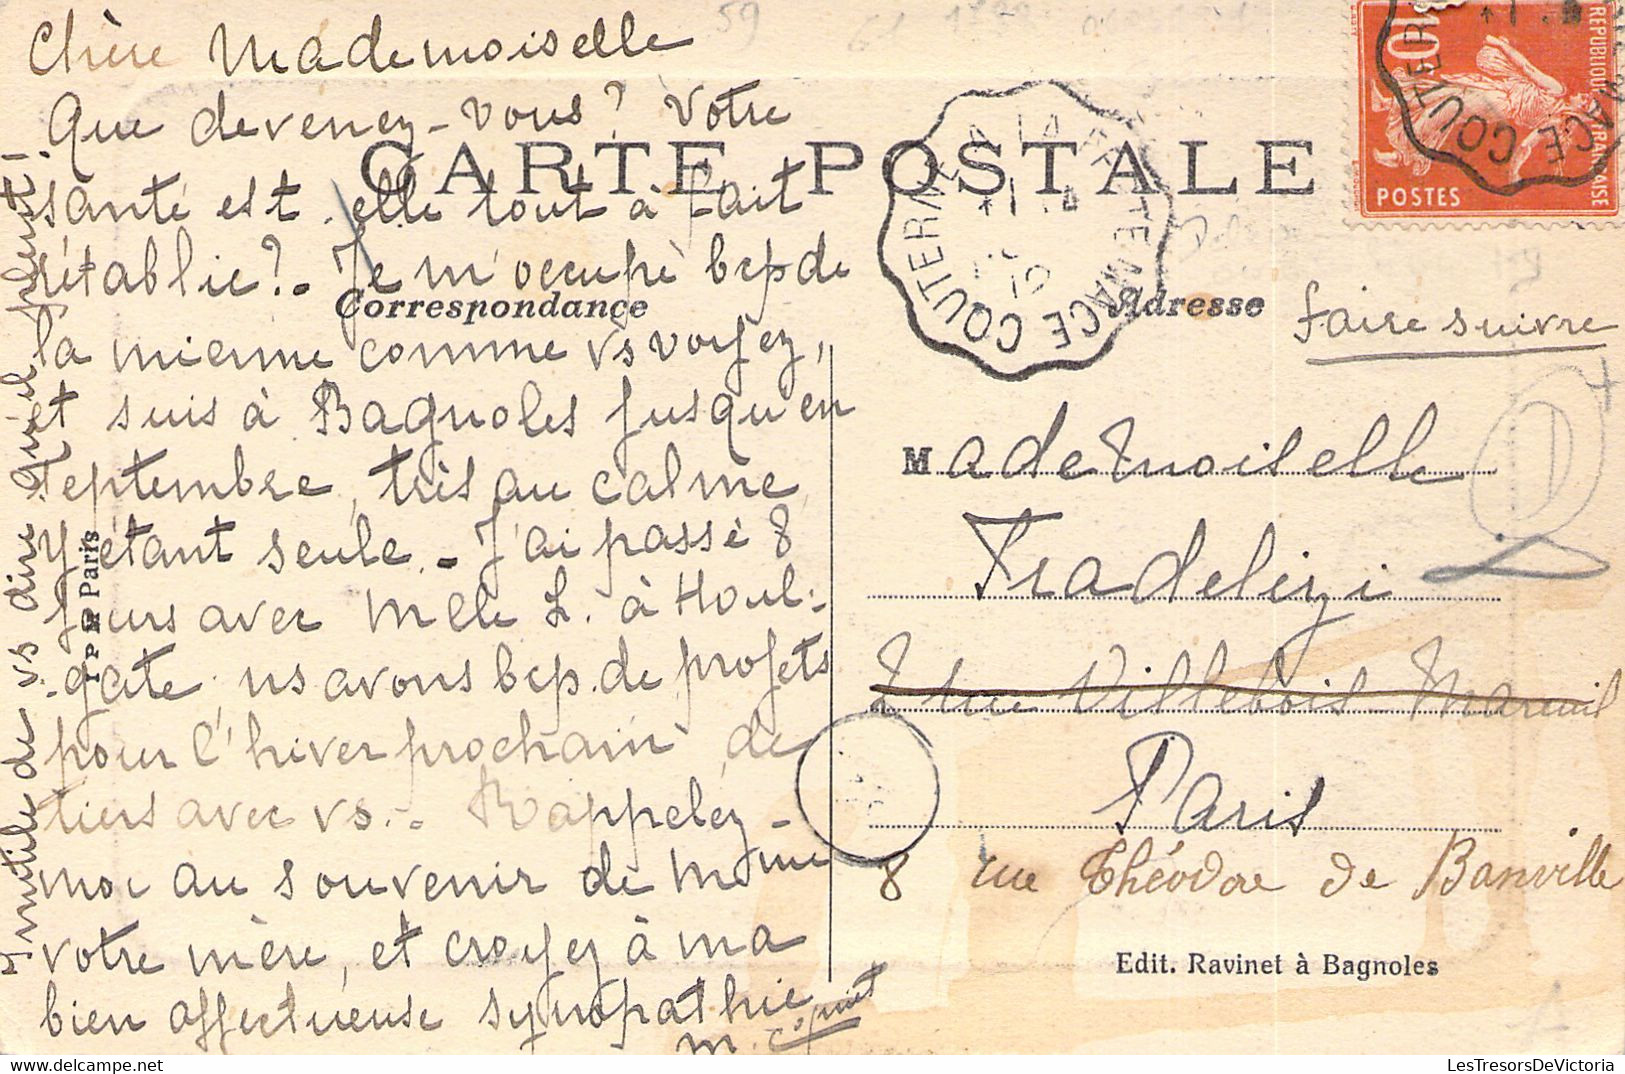 Chère Mademoiselle
Que devenez-vous? Votre
santé est-elle tout à fait
rétablie? - Je m'occupe bcp de
la mienne comme vs voyez,
et suis à Bagnoles jusqu'en
Septembre, très au calme
y étant seule. - J'ai passé 8
jours avec Melle L. à Houl-
gate, ns avons bcp. de projets
pour l'hiver prochain, de
tiers avec vs. - Rappelez-
moi au souvenir de Mme
votre mère, et croyez à ma
bien affectueuse sympathie
Inutile de vs dire qu'il pleut!
CARTE POSTALE
Correspondance
Adresse
faire suivre
Mademoiselle
Fradelizi
2 rue Villebois-Mareuil
Paris
8 rue Théodore de Banville
Edit. Ravinet à Bagnoles
Paris
REPUBLIQUE FRANÇAISE
10
POSTES
LA FERTE MACE COUTERNE
LesTresorsDeVictoria